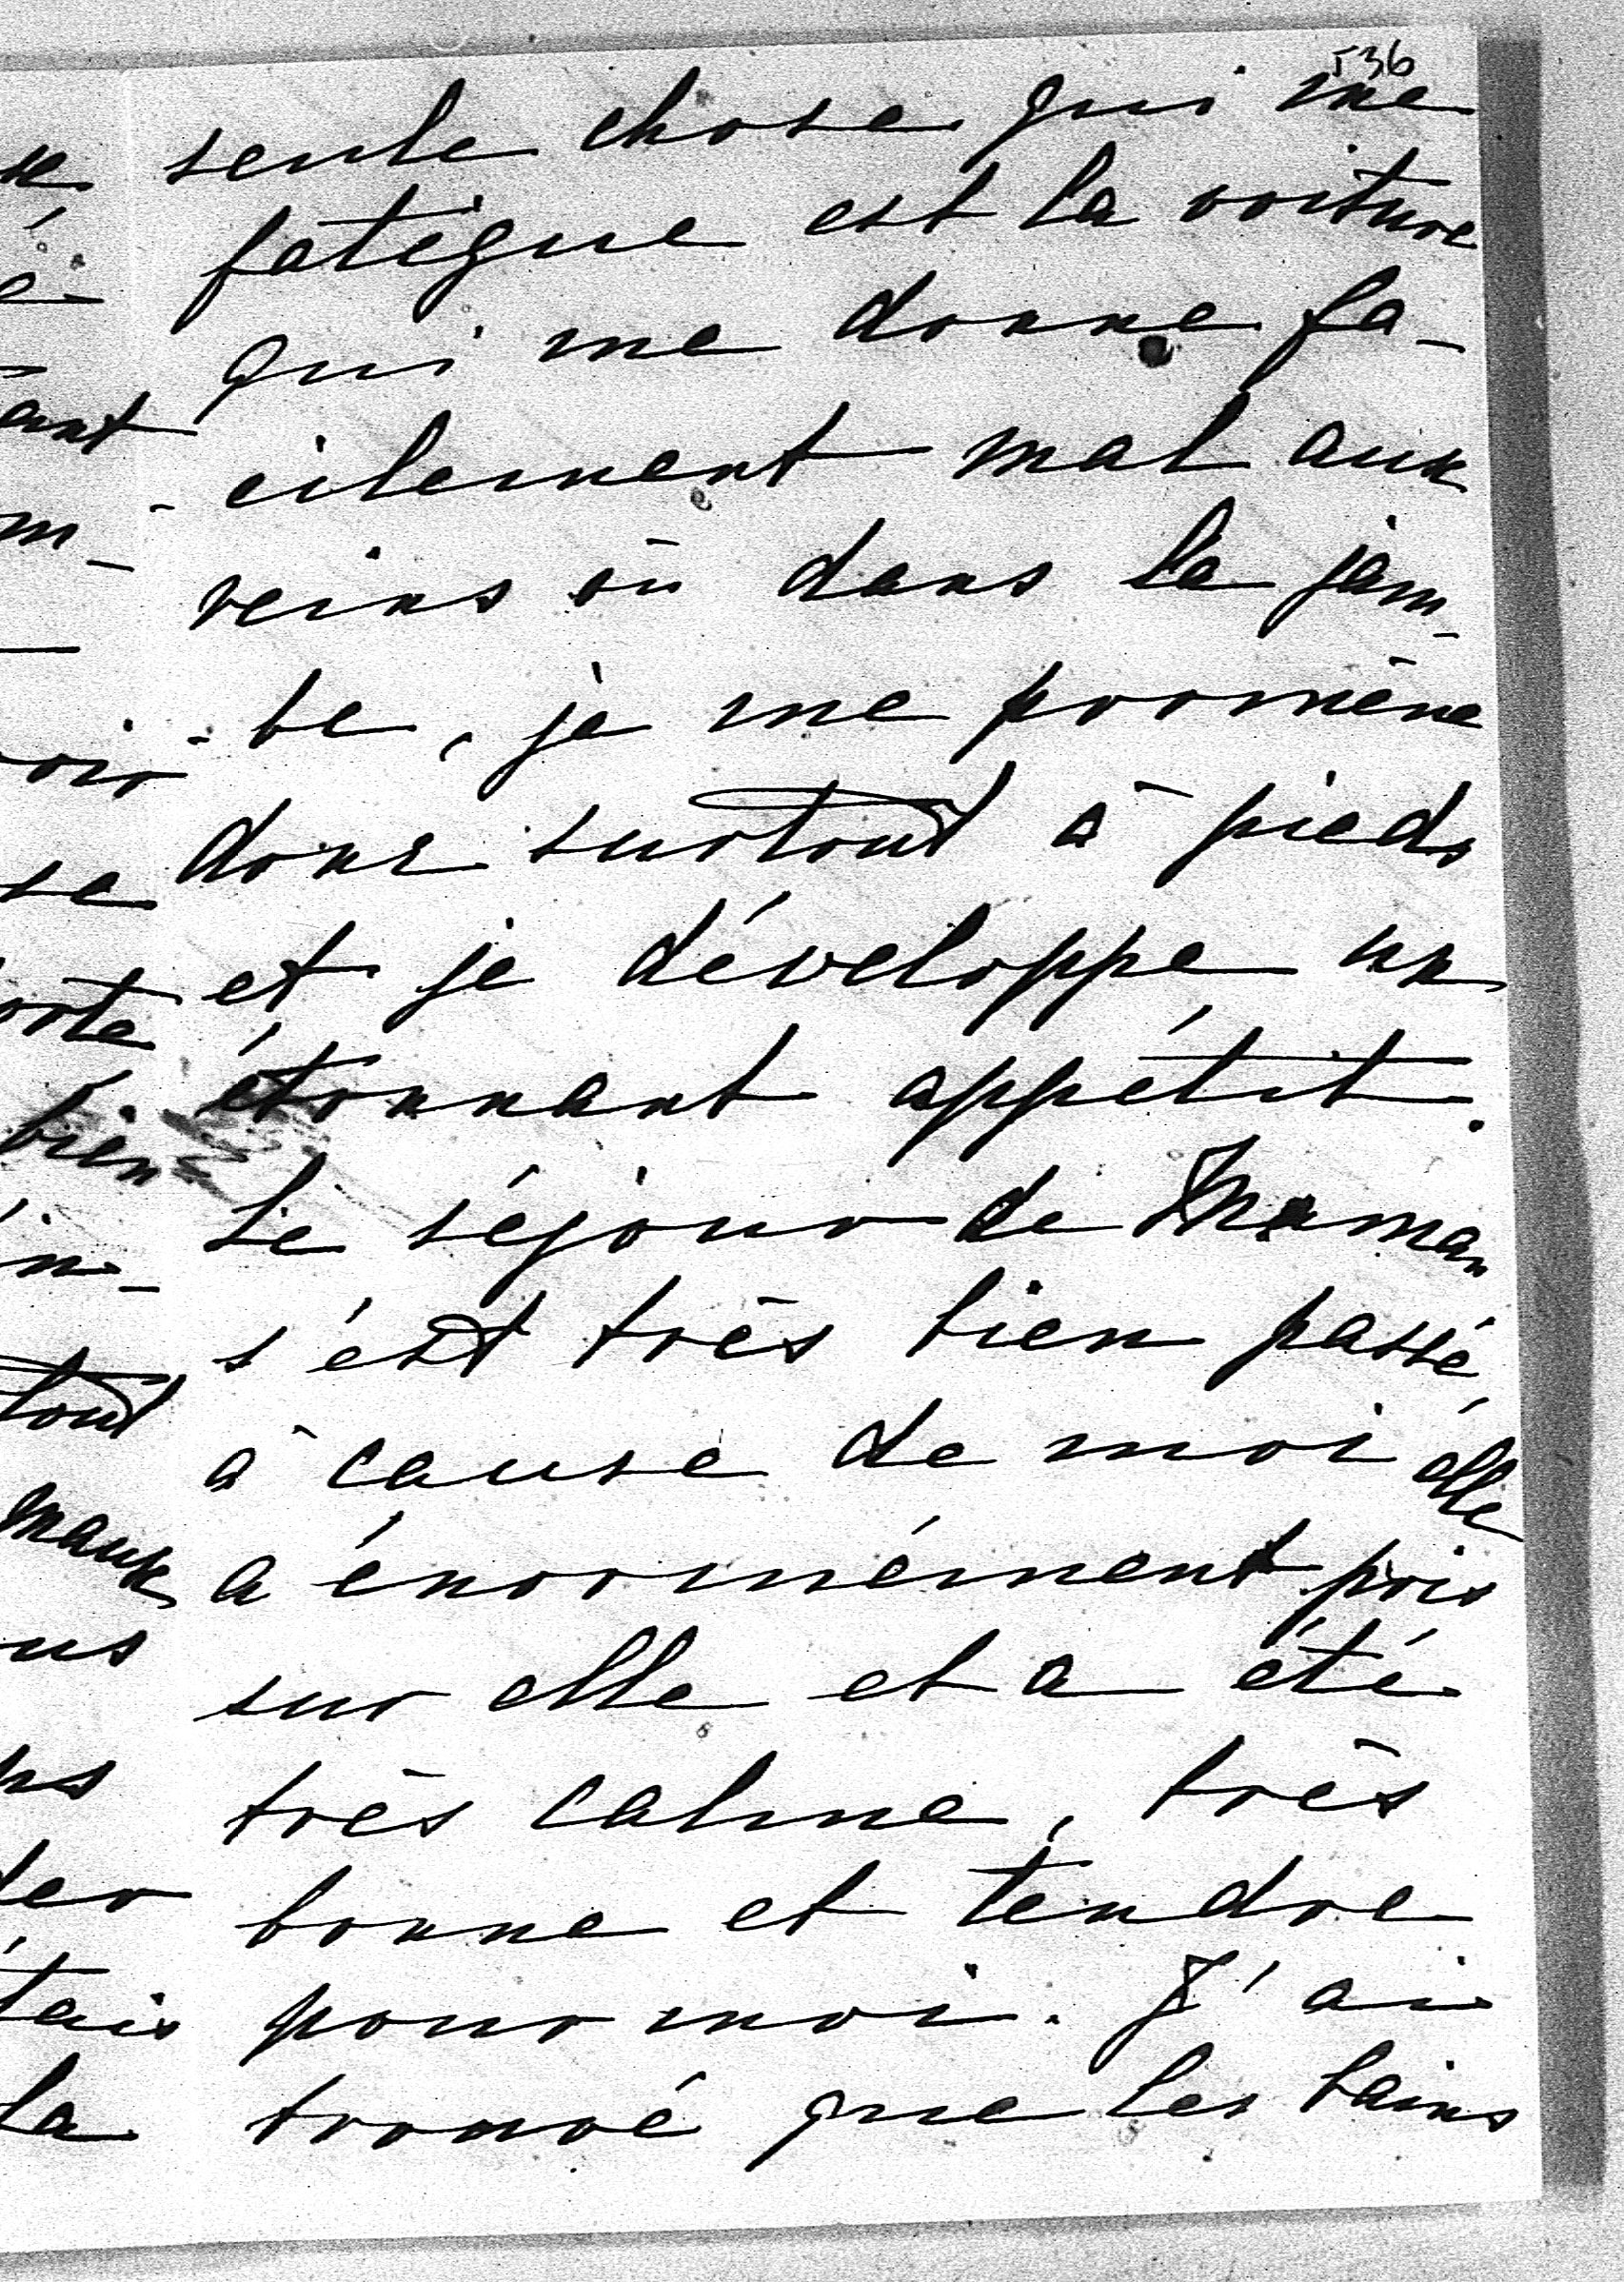 536
seule chose qui me
fatigue est la voiture
qui me donne fa-
-cilement mal aux
reins où dans la jam-
-be, je me promène
donc surtout à pieds
et je développe un
étonnant appétit.
Le séjour de Maman
s'est très bien passé,
à cause de moi elle
a énormément pris
sur elle et a été
très calme, très
bonne et tendre
pour moi. J'ai
trouvé que les bains
ant
se
orte
bien
tout
maux
la